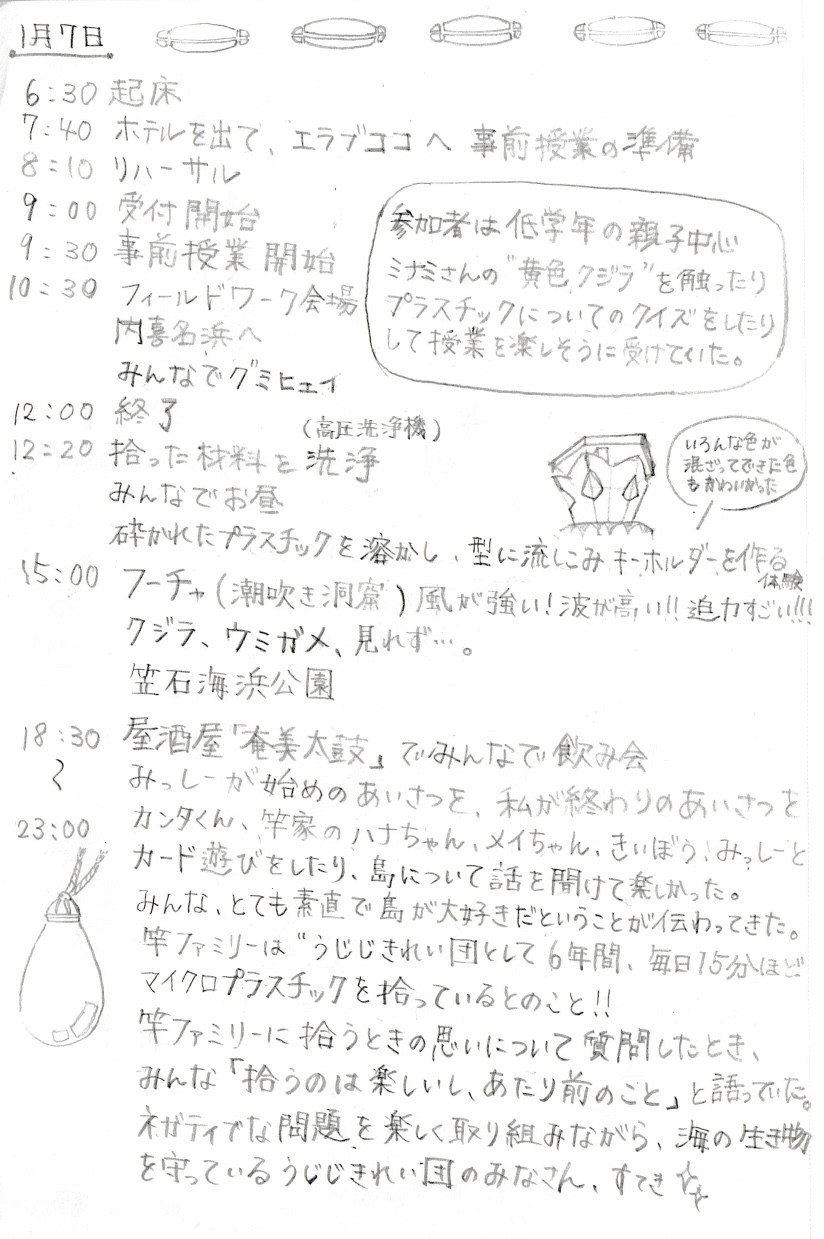 1月7日
6:30 起床
7:40 ホテルを出て、エラブココへ 事前授業の準備
8:10 リハーサル
9:00 受付開始
9:30 事前授業開始
10:30 フィールドワーク会場
内喜名浜へ
みんなでグミヒェイ
参加者は低学年の親子中心
ミナミさんの"黄色クジラ"を触ったり
プラスチックについてのクイズをしたり
して授業を楽しそうに受けていた。
12:00 終了
(高圧洗浄機)
12:20 拾った材料を洗浄
みんなでお昼
いろんな色が
混ざってできた色
もかわいかった
砕かれたプラスチックを溶かし、型に流しこみキーホルダーを作る
体験
15:00 フーチャ(潮吹き洞窟)風が強い!波が高い!!迫力すごい!!!
クジラ、ウミガメ、見れず…。
笠石海浜公園
18:30 屋酒屋「奄美太鼓」でみんなで飲み会
〜 みっしーが始めのあいさつを、私が終わりのあいさつを
23:00 カンタくん、竿家のハナちゃん、メイちゃん、きいぼう、みっしーと
カード遊びをしたり、島について話を聞けて楽しかった。
みんな、とても素直で島が大好きだということが伝わってきた。
竿ファミリーは"うじじきれい団として6年間、毎日15分ほど
マイクロプラスチックを拾っているとのこと!!
竿ファミリーに拾うときの思いについて質問したとき、
みんな「拾うのは楽しいし、あたり前のこと」と語っていた。
ネガティブな問題を楽しく取り組みながら、海の生き物
を守っているうじじきれい団のみなさん、すてき